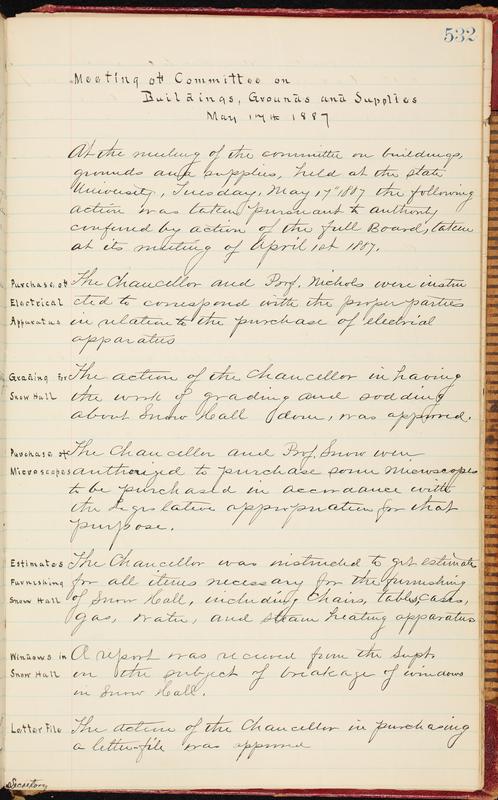 532
Meeting of Committee on
Buildings, Grounds and Supplies
May 17th 1887
At the meeting of the committee on buildings,
grounds and supplies, held at the State
University, Tuesday, May 17" 1887 the following
action was taken pursuant to authority
confered by action of the full Board, taken
at its meeting of April 1st 1887.
Purchase of The Chancellor and Prof. Nichols were instru
Electrical cted to correspond with the proper parties
Apparatus in relation to the purchase of electrical
apparatus
Grading for The action of the Chancellor in having
Snow Hall the work of grading and sodding
about Snow Hall done, was approved.
Purchase of The Chancellor and Prof. Snow were
Microscopes authorized to purchase some microscopes
to be purchased in accordance with
the Legislative appropriation for that
purpose.
Estimates The Chancellor was instructed to get estimate
Furnishing for all items necessary for the furnishing
Snow Hall of Snow Hall, including Chairs, tables, cases,
gas, water, and steam heating apparatus
Windows in A report was received from the Supt
Snow Hall on the subject of breakage of windows
in Snow Hall.
Letter File The action of the Chancellor in purchasing
a letter-file was approved
Secretary